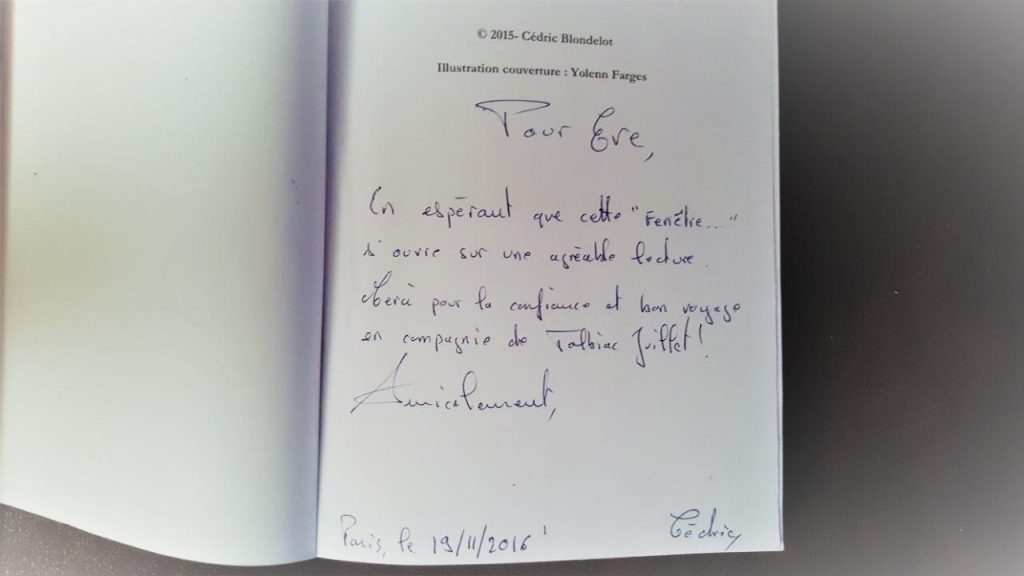 © 2015- Cédric Blondelot
Illustration couverture : Yolenn Farges
Pour Eve,
En espérant que cette "Fenêtre..."
s'ouvre sur une agréable lecture.
Merci pour la confiance et bon voyage
en compagnie de Tolbiac Juillet !
Amicalement,
Paris, le 19/11/2016
Cédric